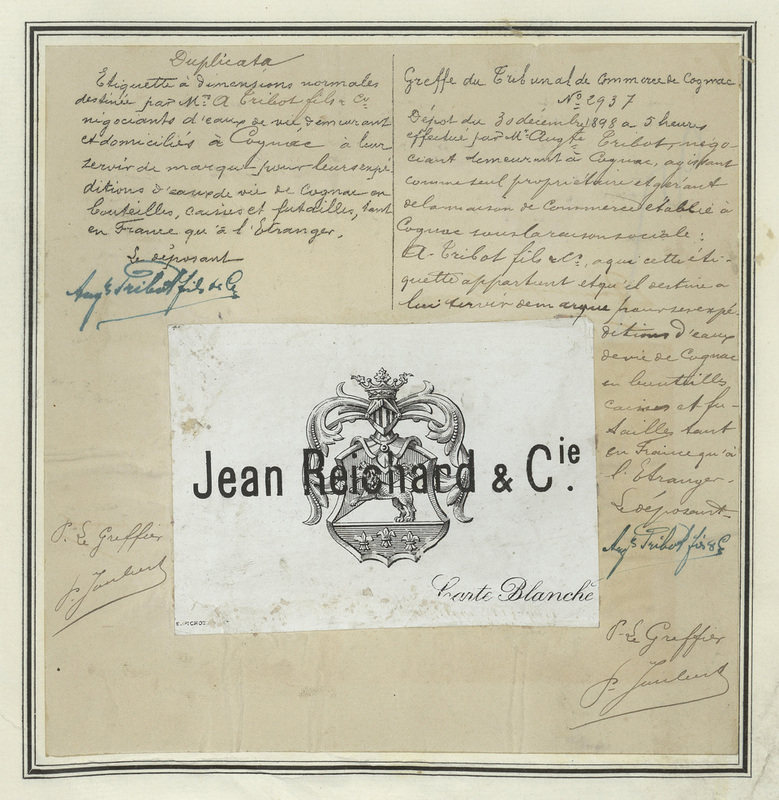 Duplicata
Etiquette à dimensions normales
destinée par Mr. A Tribot fils & Cie
négociants d'eaux de vie demeurant
et domiciliés à Cognac à leur
servir de marque pour leurs expé
ditions d'eaux de vie de Cognac en
bouteilles, caisses et futailles, tant
en France qu'à l'Etranger.
Le déposant
Augte Tribot fils & Ce
Greffe du Tribunal de Commerce de Cognac
No 2937
Dépot du 30 décembre 1898 a 5 heures
effectué par Mr Augte Tribot, négo-
ciant demeurant à Cognac, agissant
comme seul propriétaire et gérant
de la maison de Commerce établie à
Cognac sous la raison sociale:
A. Tribot fils & Ce, a qui cette éti-
quette appartient et qu'il destine a
lui servir de marque pour ses expé-
ditions d'eaux
de vie de Cognac
en bouteilles
caisses et fu-
tailles tant
en France qu'à
l'Etranger.
Le déposant
Augte Tribot fils & Ce
Jean Reichard & Cie.
Carte Blanche
P. Le Greffier
P. Joubert
P. Le Greffier
P. Joubert